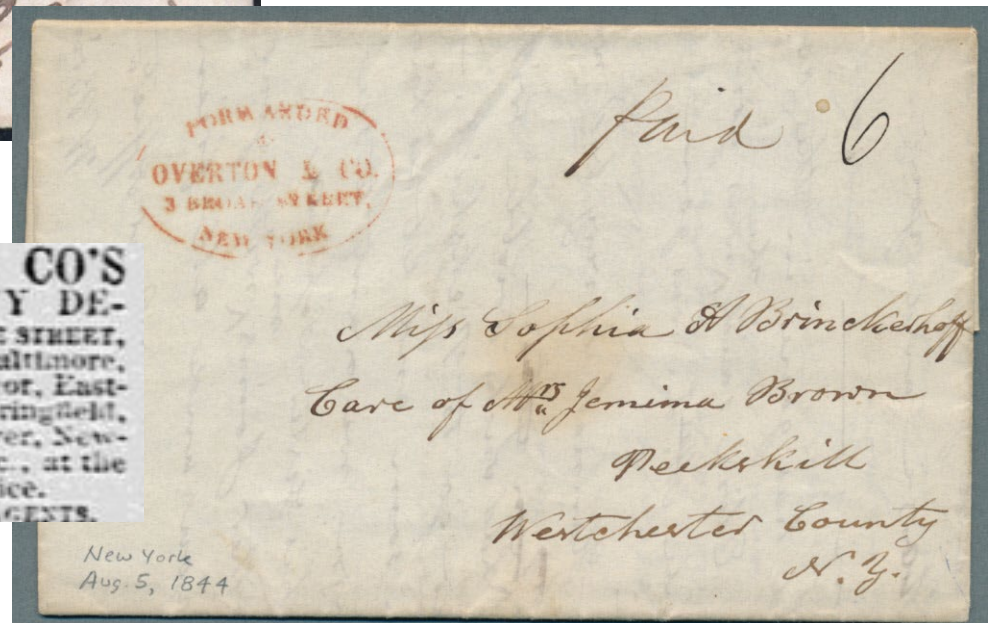 FORWARDED
OVERTON & CO.
3 BROAD STREET,
NEW YORK
Paid 6
CO'S
Y DE-
E STREET,
altimore,
or, East-
ringfield,
er, New-
c., at the
ice.
AGENTS.
Miss Sophia A Brinckerhoff
Care of Mrs Jemima Brown
Peekskill
Westchester County
N.Y.
New York
Aug. 5, 1844